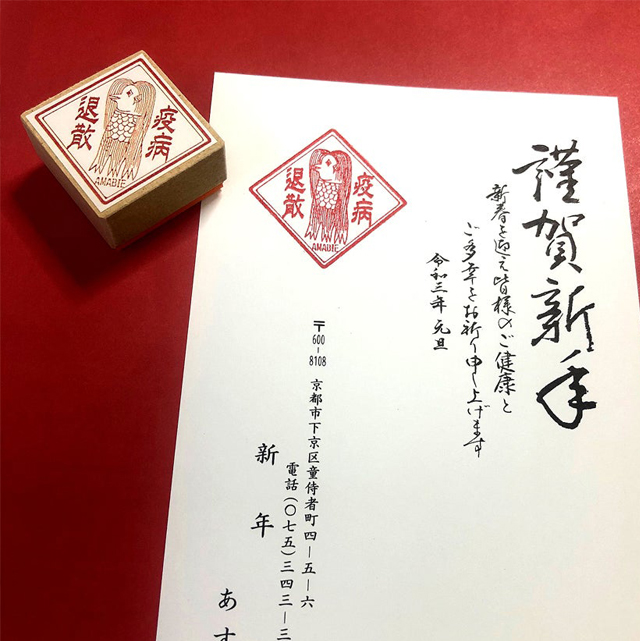 疫病
退散
AMABIE
疫病
退散
AMABIE
謹賀新年
新春を迎え皆様のご健康と
ご多幸をお祈り申し上げます
令和三年 元旦
〒600-8108
京都市下京区童侍者町四-五-六
電話(〇七五)三四三-三
新年
あす